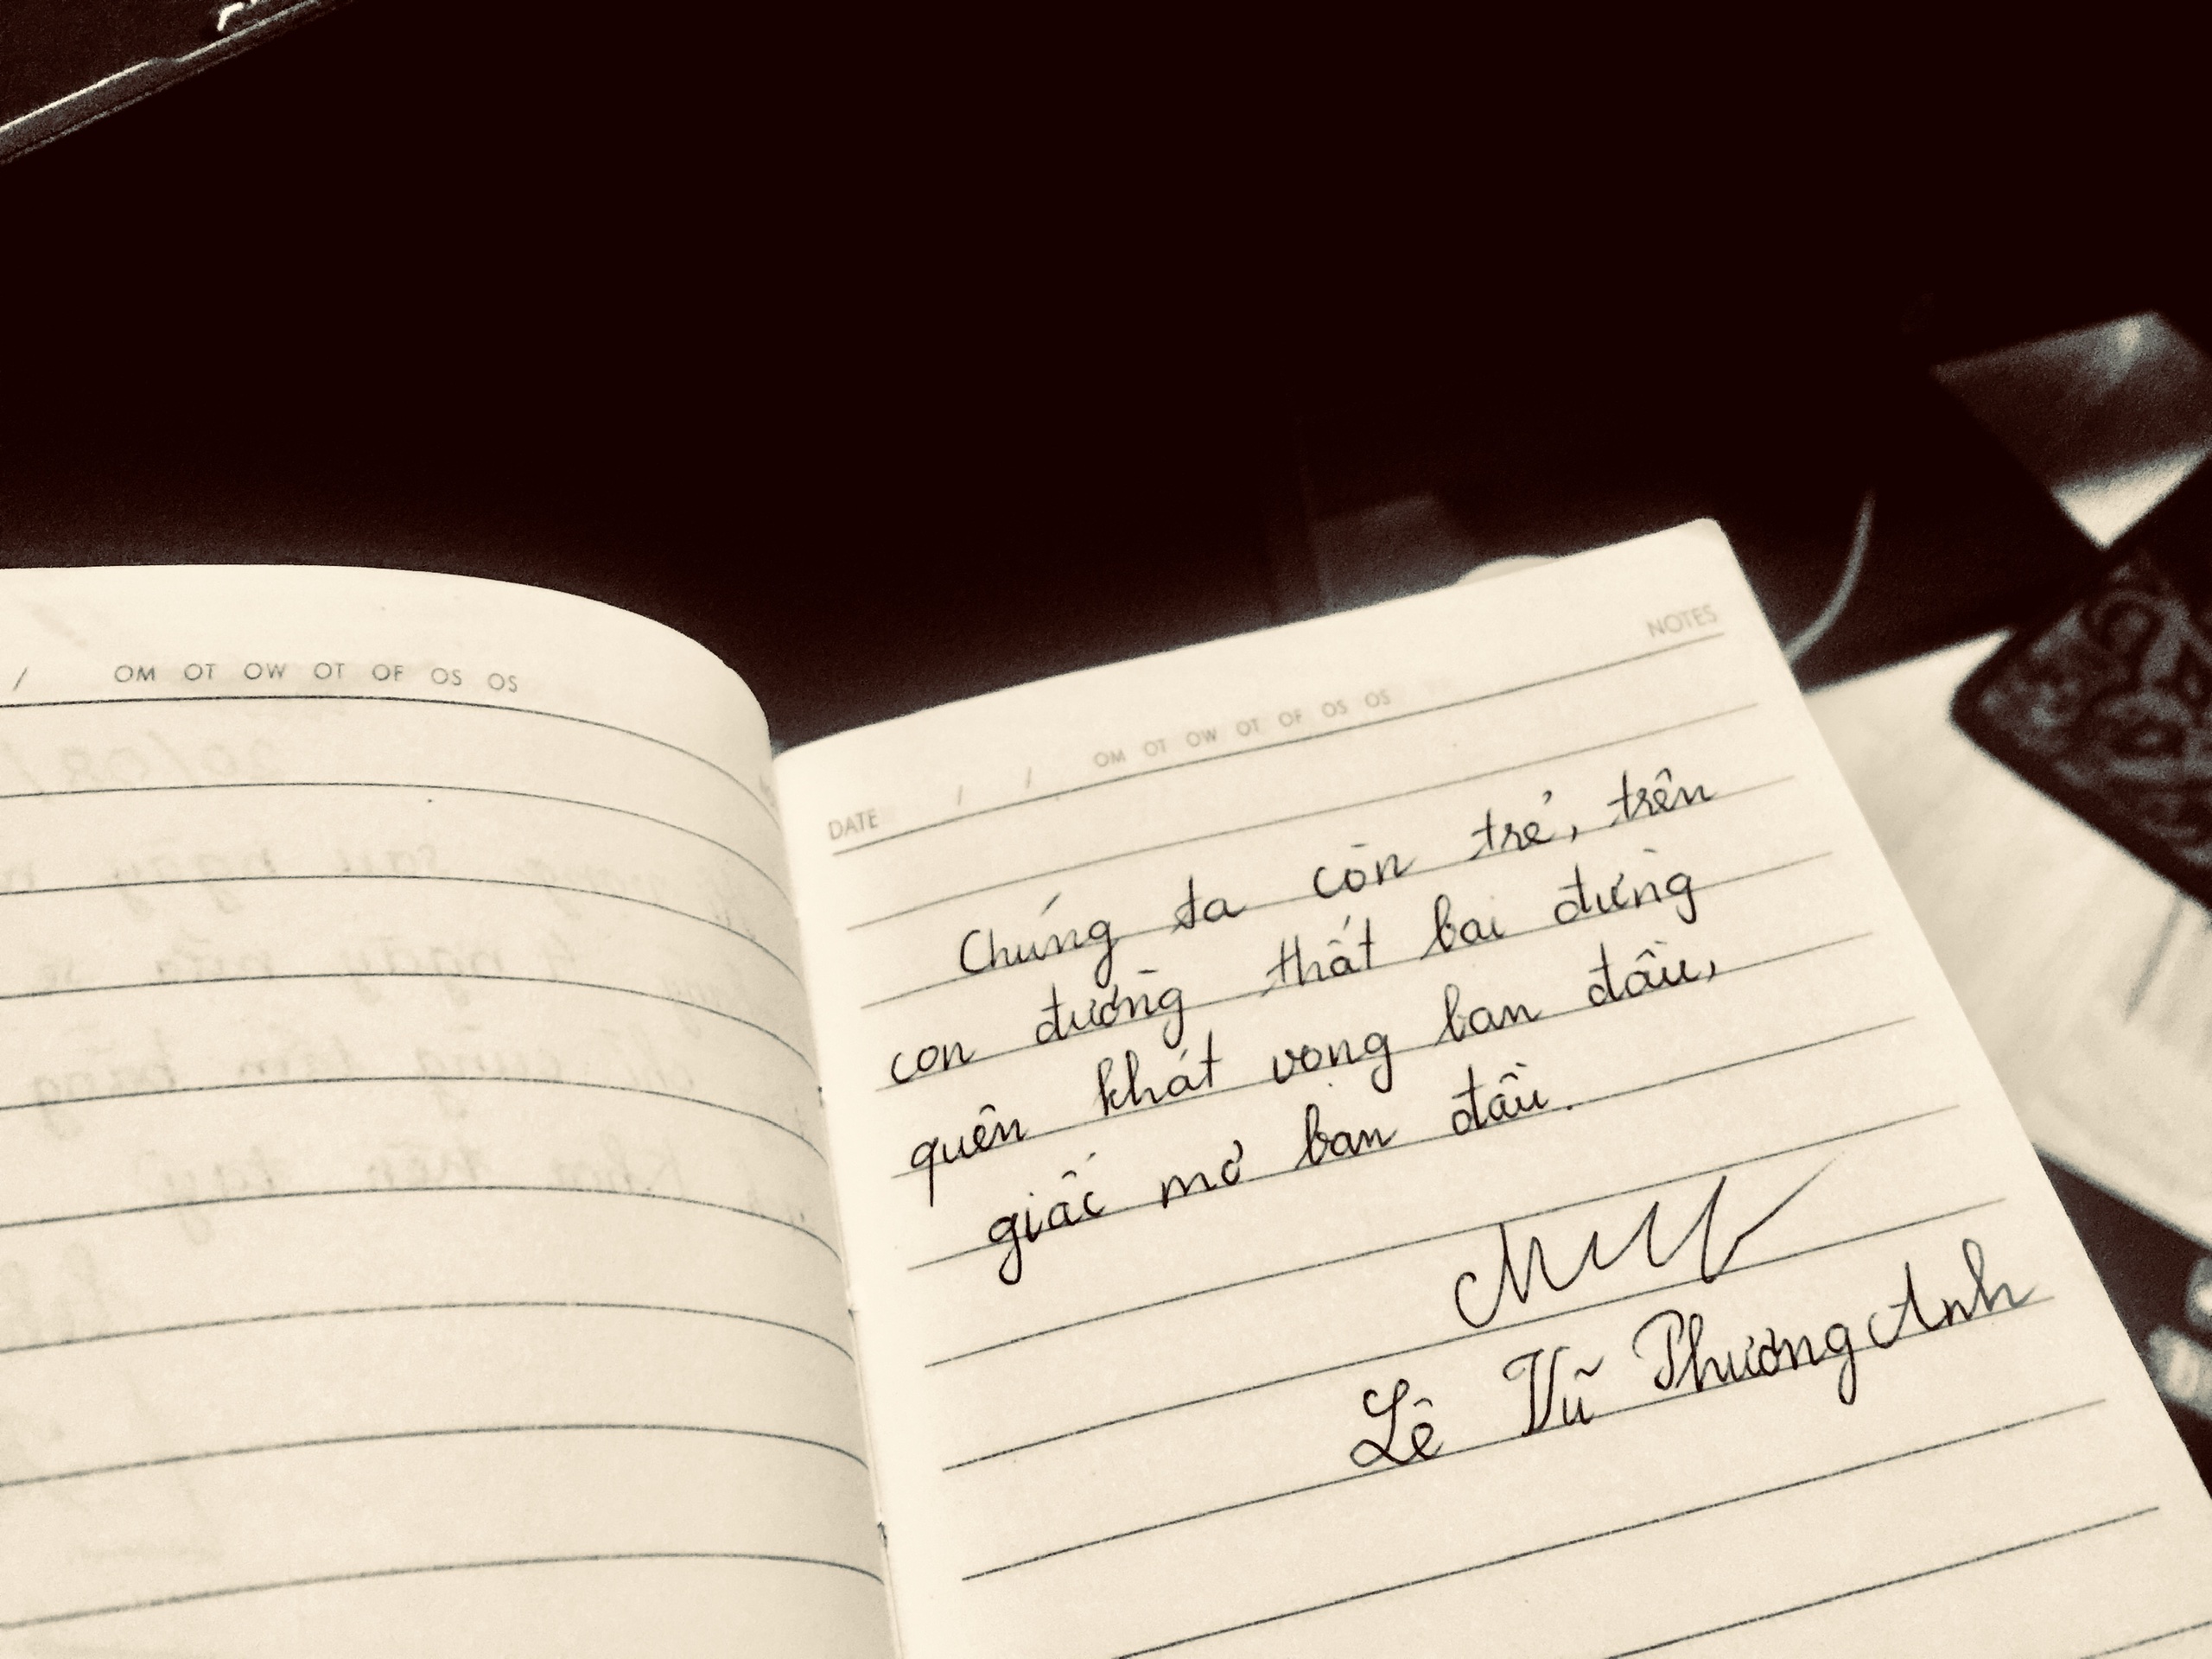 / OM OT OW OT OF OS OS
NOTES
DATE / / OM OT OW OT OF OS OS
Chúng ta còn trẻ, trên
con đường thất bai đừng
quên khát vọng ban đầu,
giấc mơ ban đầu.
Lê Vũ Phương Anh